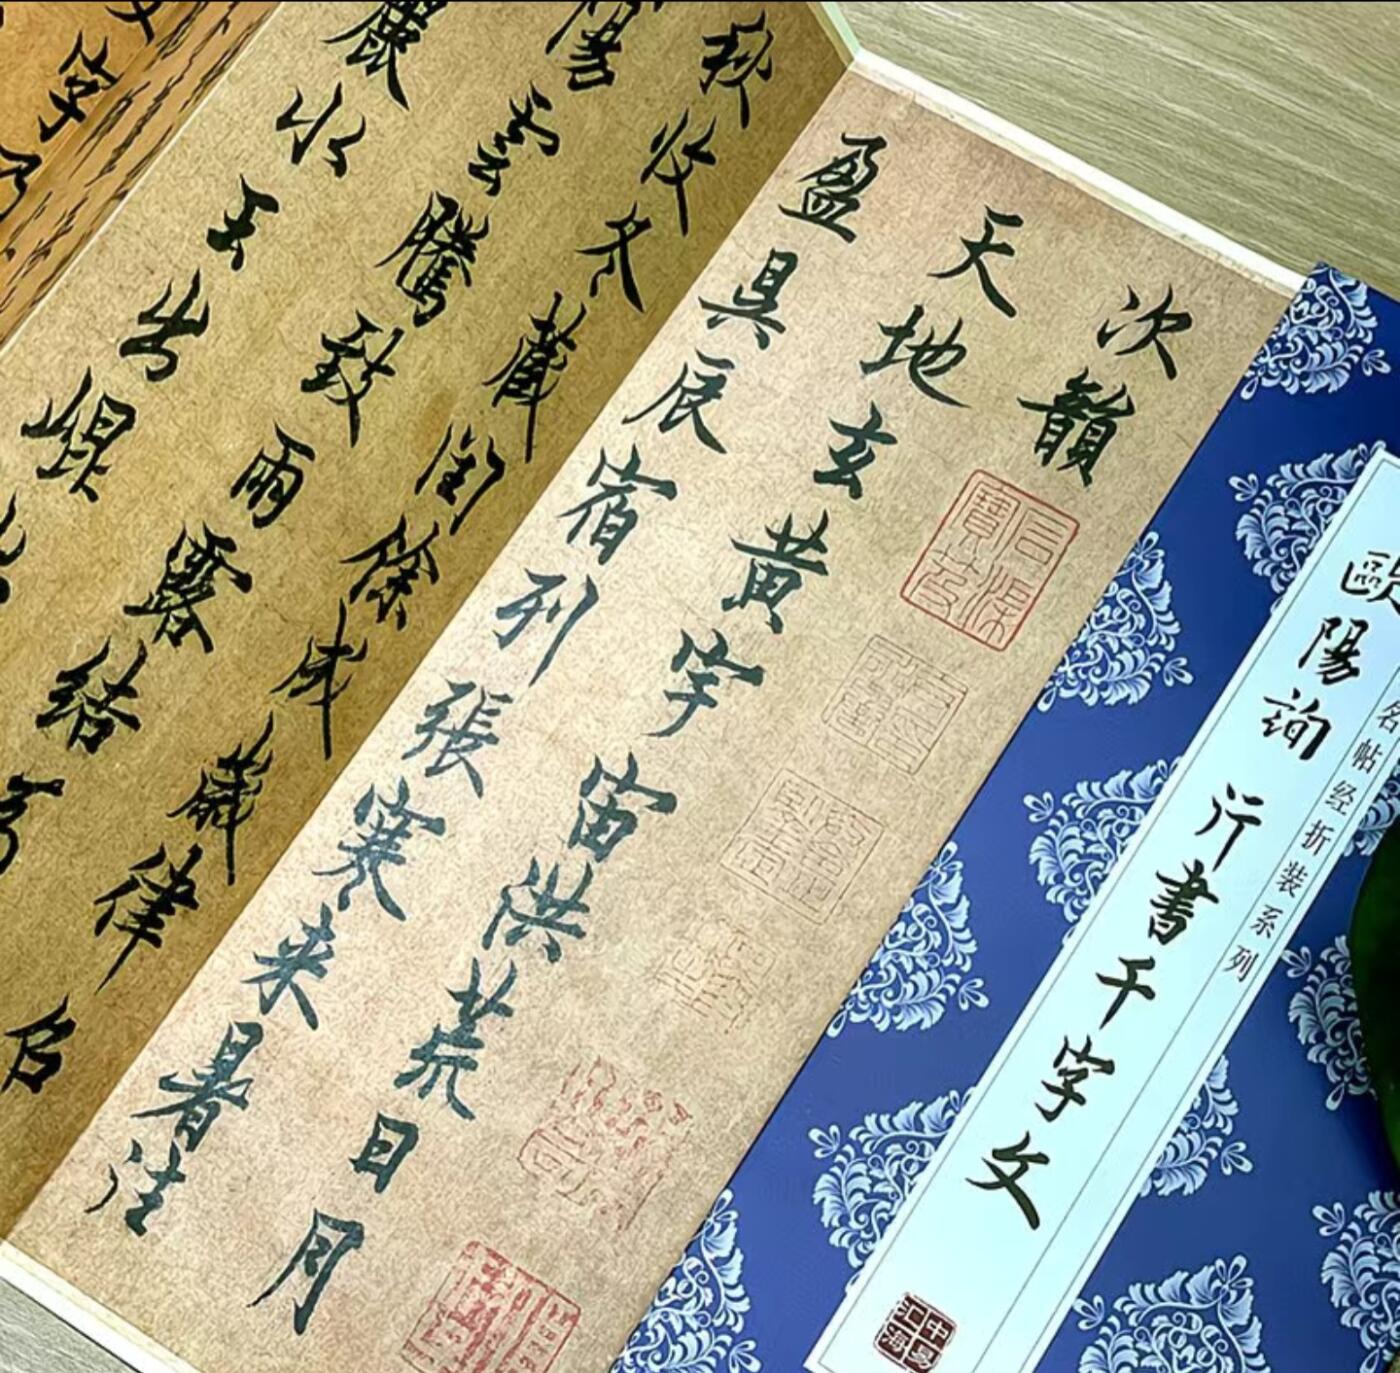 歐陽詢 行書千字文
名帖经折装系列
中易汇海
次韻
天地玄黃宇宙洪荒日月
盈昃辰宿列張寒来暑往
秋收冬藏閏餘成歲律召
陽雲騰致雨露結為
麗水玉出崐
文字乃